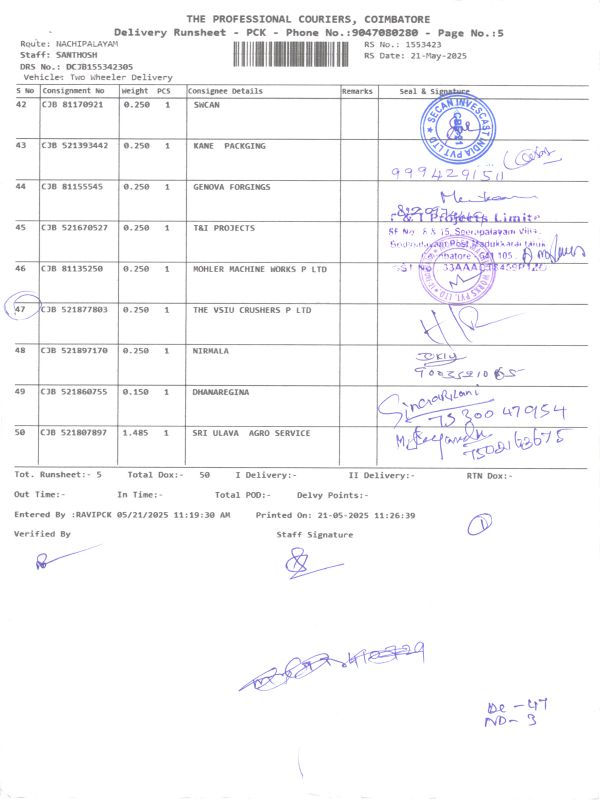 THE PROFESSIONAL COURIERS, COIMBATORE
Delivery Runsheet - PCK - Phone No.:9047080280 - Page No.:5
Route: NACHIPALAYAM RS No.: 1553423
Staff: SANTHOSH RS Date: 21-May-2025
DRS No.: DCJB155342305
Vehicle: Two Wheeler Delivery
S No Consignment No Weight PCS Consignee Details Remarks Seal & Signature
42 CJB 81170921 0.250 1 SWCAN
SECAN INVESCAST INDIA PVT LTD
43 CJB 521393442 0.250 1 KANE PACKGING
9994291511
44 CJB 81155545 0.250 1 GENOVA FORGINGS
45 CJB 521670527 0.250 1 T&I PROJECTS
T & I Projects Limite
SF No. 8 & 15, Seerapalayam Villa
Madukkarai Taluk
Coimbatore 641 105
46 CJB 81135250 0.250 1 MOHLER MACHINE WORKS P LTD
GST No
WORKS PVT. LTD
47 CJB 521877803 0.250 1 THE VSIU CRUSHERS P LTD
48 CJB 521897170 0.250 1 NIRMALA
49 CJB 521860755 0.150 1 DHANAREGINA
75300 47954
50 CJB 521807897 1.485 1 SRI ULAVA AGRO SERVICE
Tot. Runsheet:- 5 Total Dox:- 50 I Delivery:- II Delivery:- RTN Dox:-
Out Time:- In Time:- Total POD:- Delvy Points:-
Entered By :RAVIPCK 05/21/2025 11:19:30 AM Printed On: 21-05-2025 11:26:39
1
Verified By Staff Signature
De - 47
ND - 3